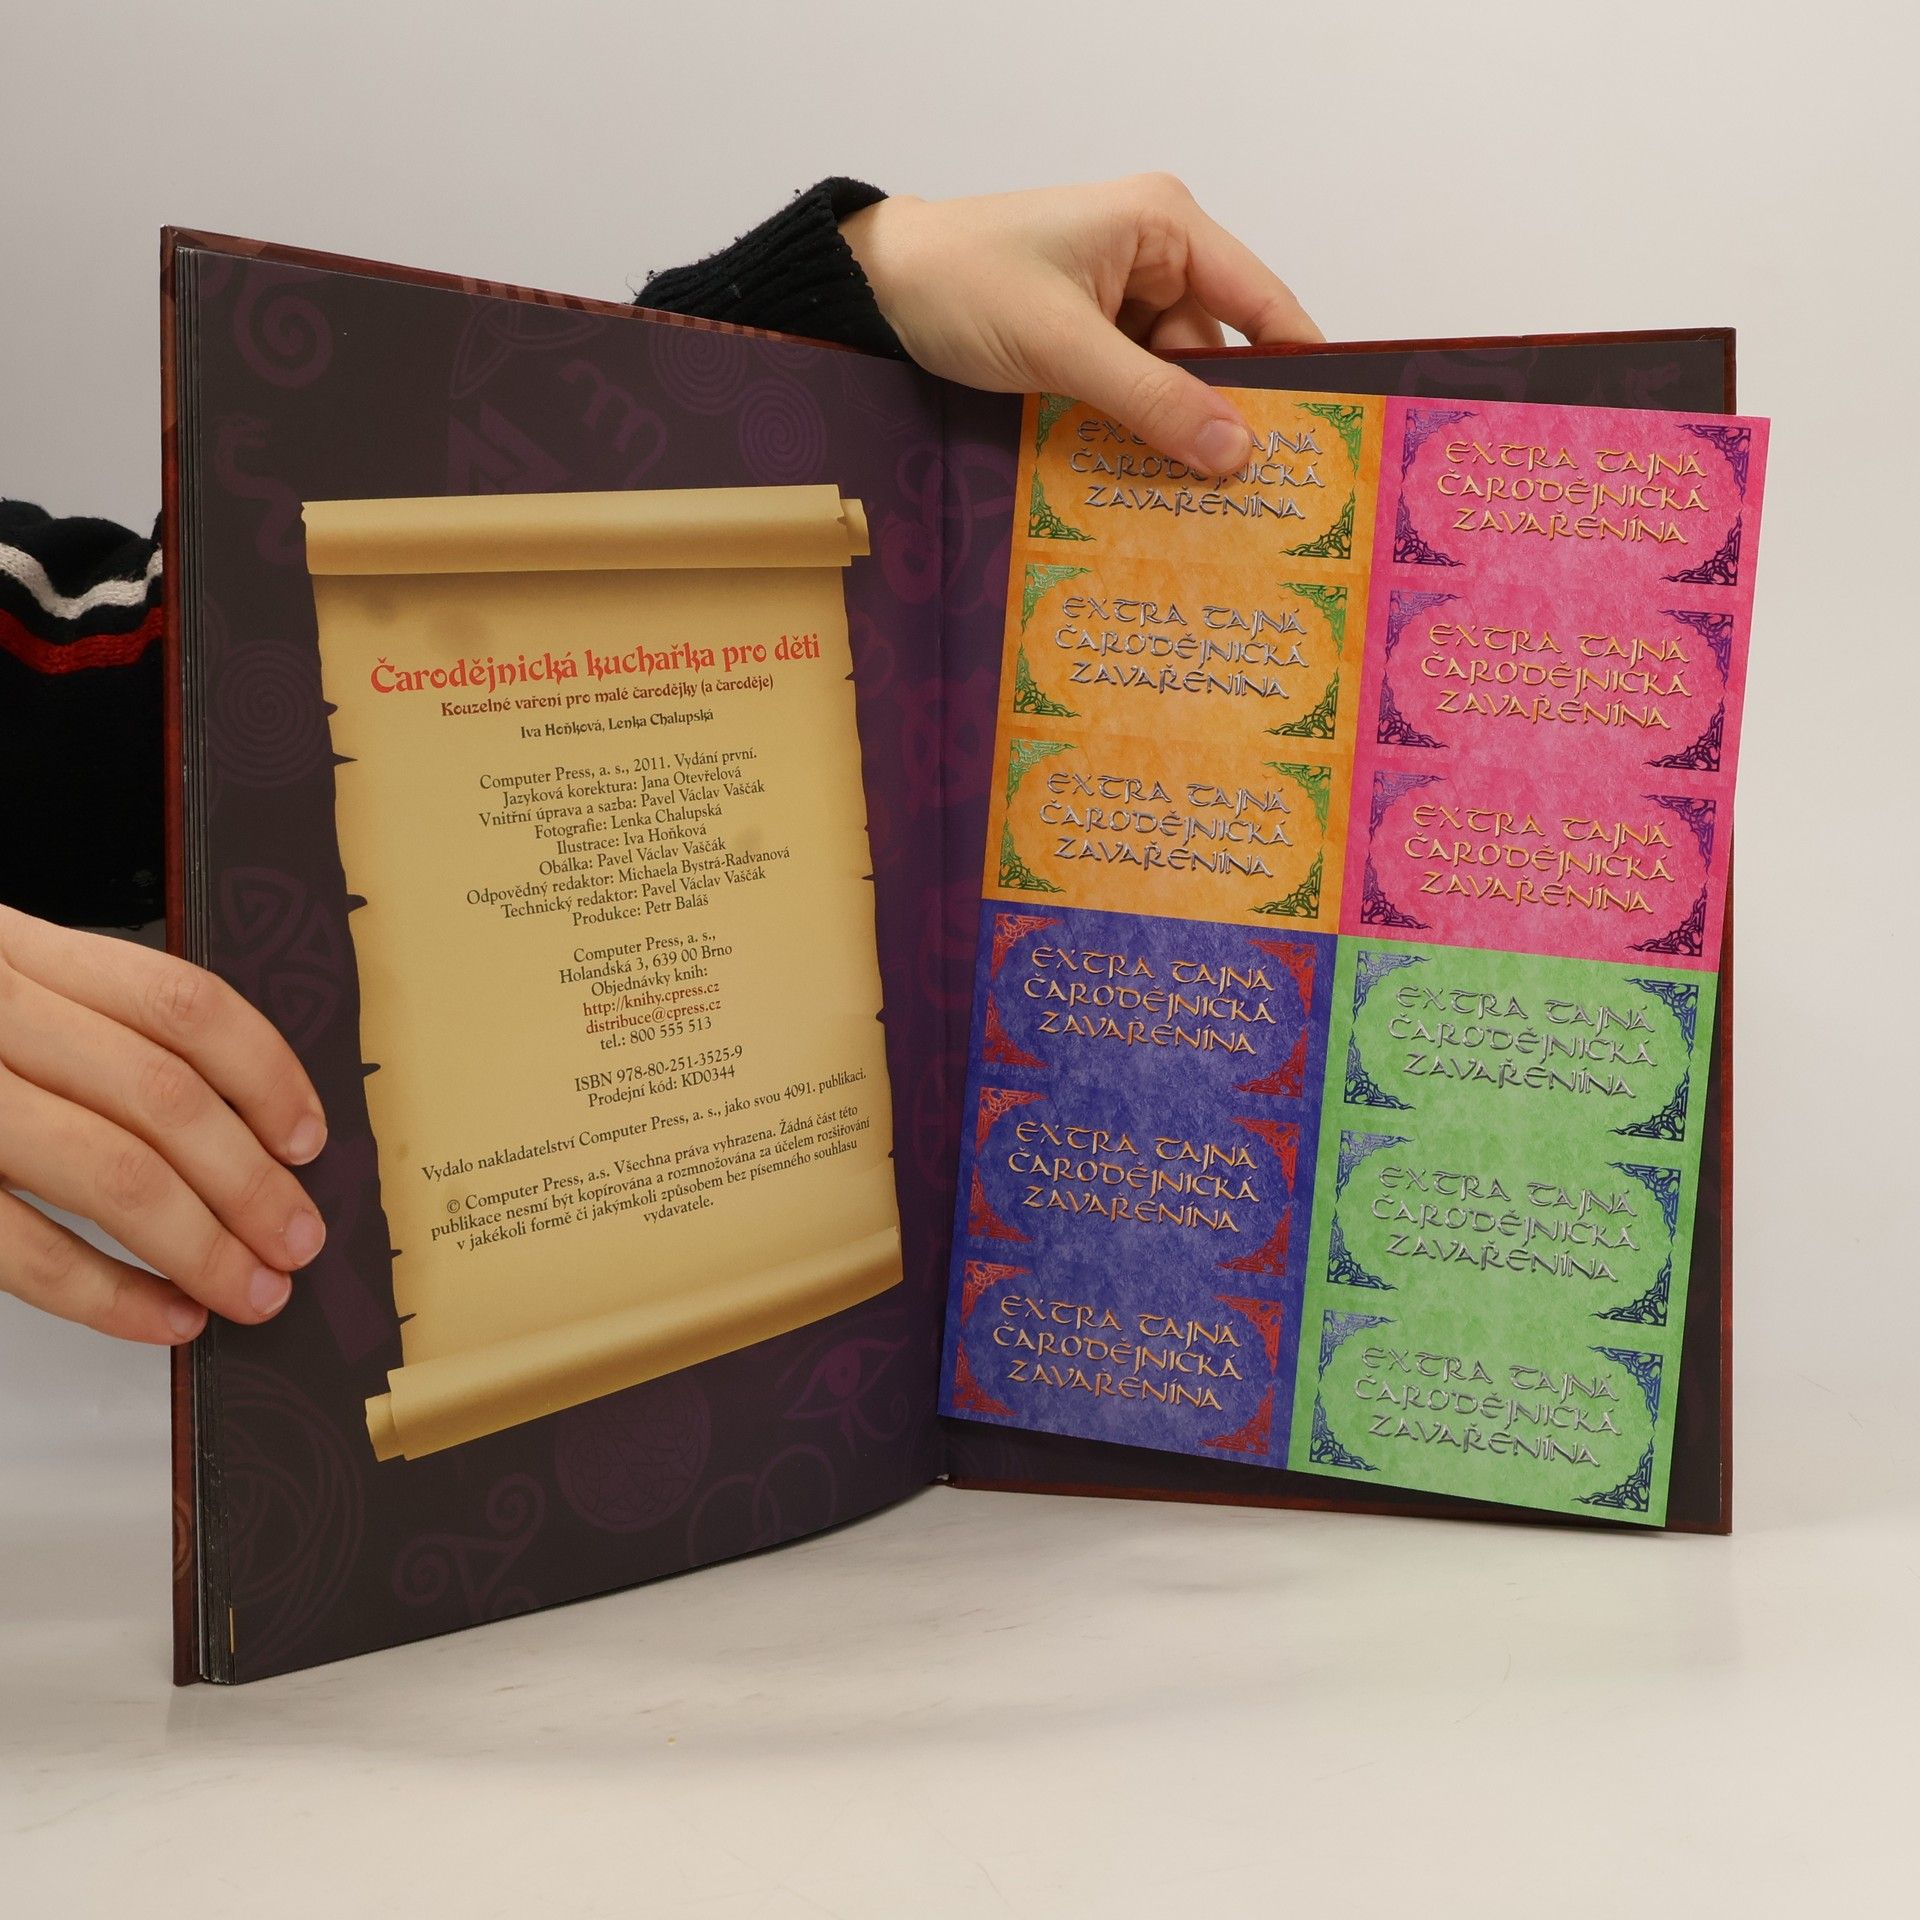 Čarodějnická kuchařka pro děti
Kouzelné vaření pro malé čarodějky (a čaroděje)
Iva Hoňková, Lenka Chalupská
Computer Press, a. s., 2011. Vydání první.
Jazyková korektura: Jana Otevřelová
Vnitřní úprava a sazba: Pavel Václav Vaščák
Fotografie: Lenka Chalupská
Ilustrace: Iva Hoňková
Obálka: Pavel Václav Vaščák
Odpovědný redaktor: Michaela Bystrá-Radvanová
Technický redaktor: Pavel Václav Vaščák
Produkce: Petr Baláš
Computer Press, a. s.,
Holandská 3, 639 00 Brno
Objednávky knih:
http://knihy.cpress.cz
distribuce@cpress.cz
tel.: 800 555 513
ISBN 978-80-251-3525-9
Prodejní kód: KD0344
Vydalo nakladatelství Computer Press, a. s., jako svou 4091. publikaci.
© Computer Press, a.s. Všechna práva vyhrazena. Žádná část této
publikace nesmí být kopírována a rozmnožována za účelem rozšiřování
v jakékoli formě či jakýmkoli způsobem bez písemného souhlasu
vydavatele.
ZAVAŘENÍNA
EXTRA TAJNÁ
ČARODĚJNICKÁ
ZAVAŘENÍNA
EXTRA TAJNÁ
ČARODĚJNICKÁ
ZAVAŘENÍNA
EXTRA TAJNÁ
ČARODĚJNICKÁ
ZAVAŘENÍNA
EXTRA TAJNÁ
ČARODĚJNICKÁ
ZAVAŘENÍNA
EXTRA TAJNÁ
ČARODĚJNICKÁ
ZAVAŘENÍNA
EXTRA TAJNÁ
ČARODĚJNICKÁ
ZAVAŘENÍNA
EXTRA TAJNÁ
ČARODĚJNICKÁ
ZAVAŘENÍNA
EXTRA TAJNÁ
ČARODĚJNICKÁ
ZAVAŘENÍNA
EXTRA TAJNÁ
ČARODĚJNICKÁ
ZAVAŘENÍNA
EXTRA TAJNÁ
ČARODĚJNICKÁ
ZAVAŘENÍNA
EXTRA TAJNÁ
ČARODĚJNICKÁ
ZAVAŘENÍNA